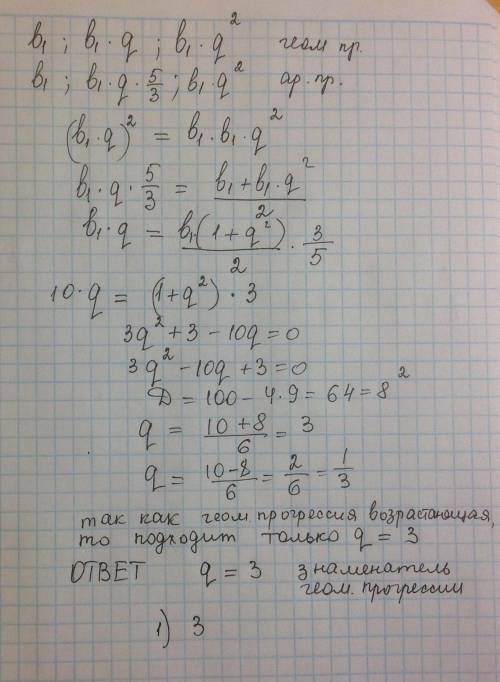 b₁ ; b₁·q ; b₁·q² геом пр.
b₁ ; b₁·q·5/3 ; b₁·q² ар. пр.
(b₁·q)² = b₁·b₁·q²
b₁·q·5/3 = (b₁+b₁·q²)/2
b₁·q = b₁(1+q²)/2 · 3/5
10·q = (1+q²)·3
3q²+3-10q=0
3q²-10q+3=0
Д = 100 - 4·9 = 64 = 8²
q = (10+8)/6 = 3
q = (10-8)/6 = 2/6 = 1/3
так как геом. прогрессия возрастающая,
то подходит только q = 3
ОТВЕТ q = 3 знаменатель
геом. прогрессии
1) 3